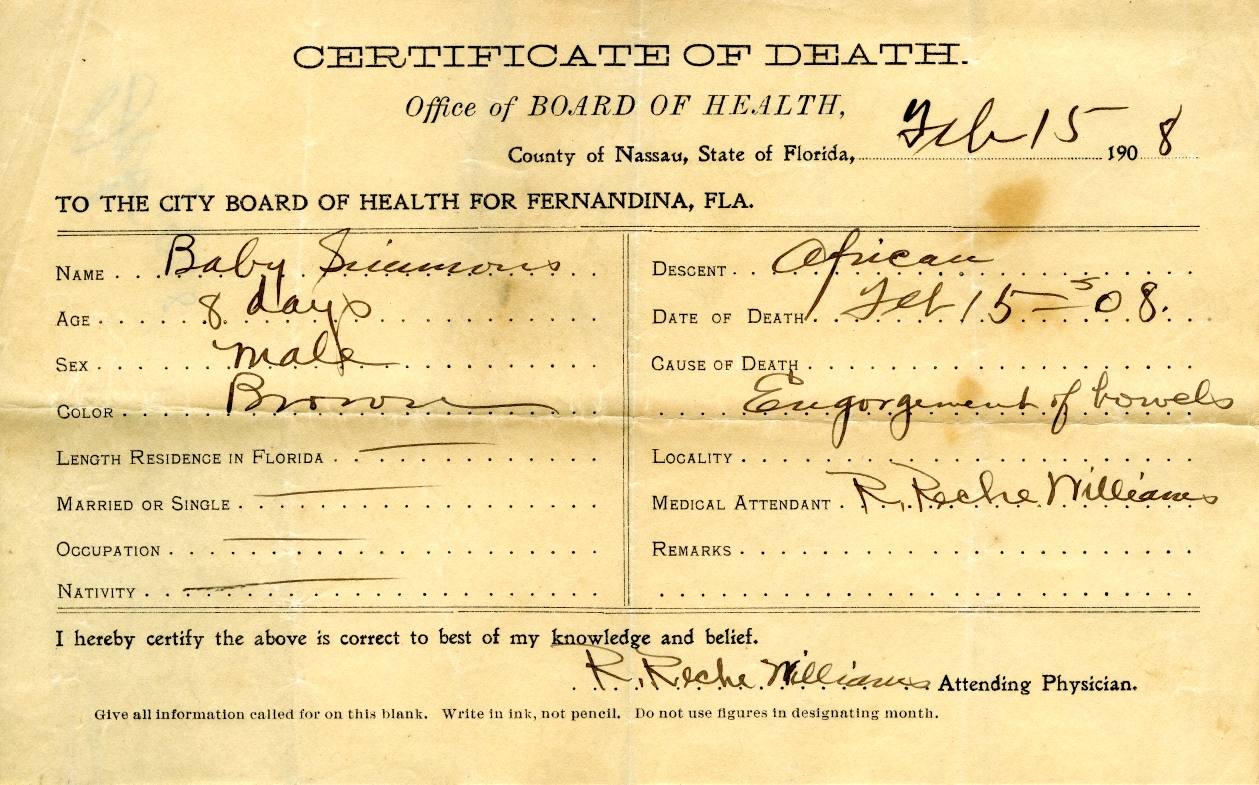 CERTIFICATE OF DEATH.
Office of BOARD OF HEALTH,
County of Nassau, State of Florida, Feb 15 1908
TO THE CITY BOARD OF HEALTH FOR FERNANDINA, FLA.
NAME Baby Simmons
AGE 8 days
SEX male
COLOR Brown
LENGTH RESIDENCE IN FLORIDA
MARRIED OR SINGLE
OCCUPATION
NATIVITY
DESCENT African
DATE OF DEATH Feb 15 – 08.
CAUSE OF DEATH
Engorgement of bowels
LOCALITY
MEDICAL ATTENDANT R. Reche Williams
REMARKS
I hereby certify the above is correct to best of my knowledge and belief.
R. Reche Williams Attending Physician.
Give all information called for on this blank. Write in ink, not pencil. Do not use figures in designating month.